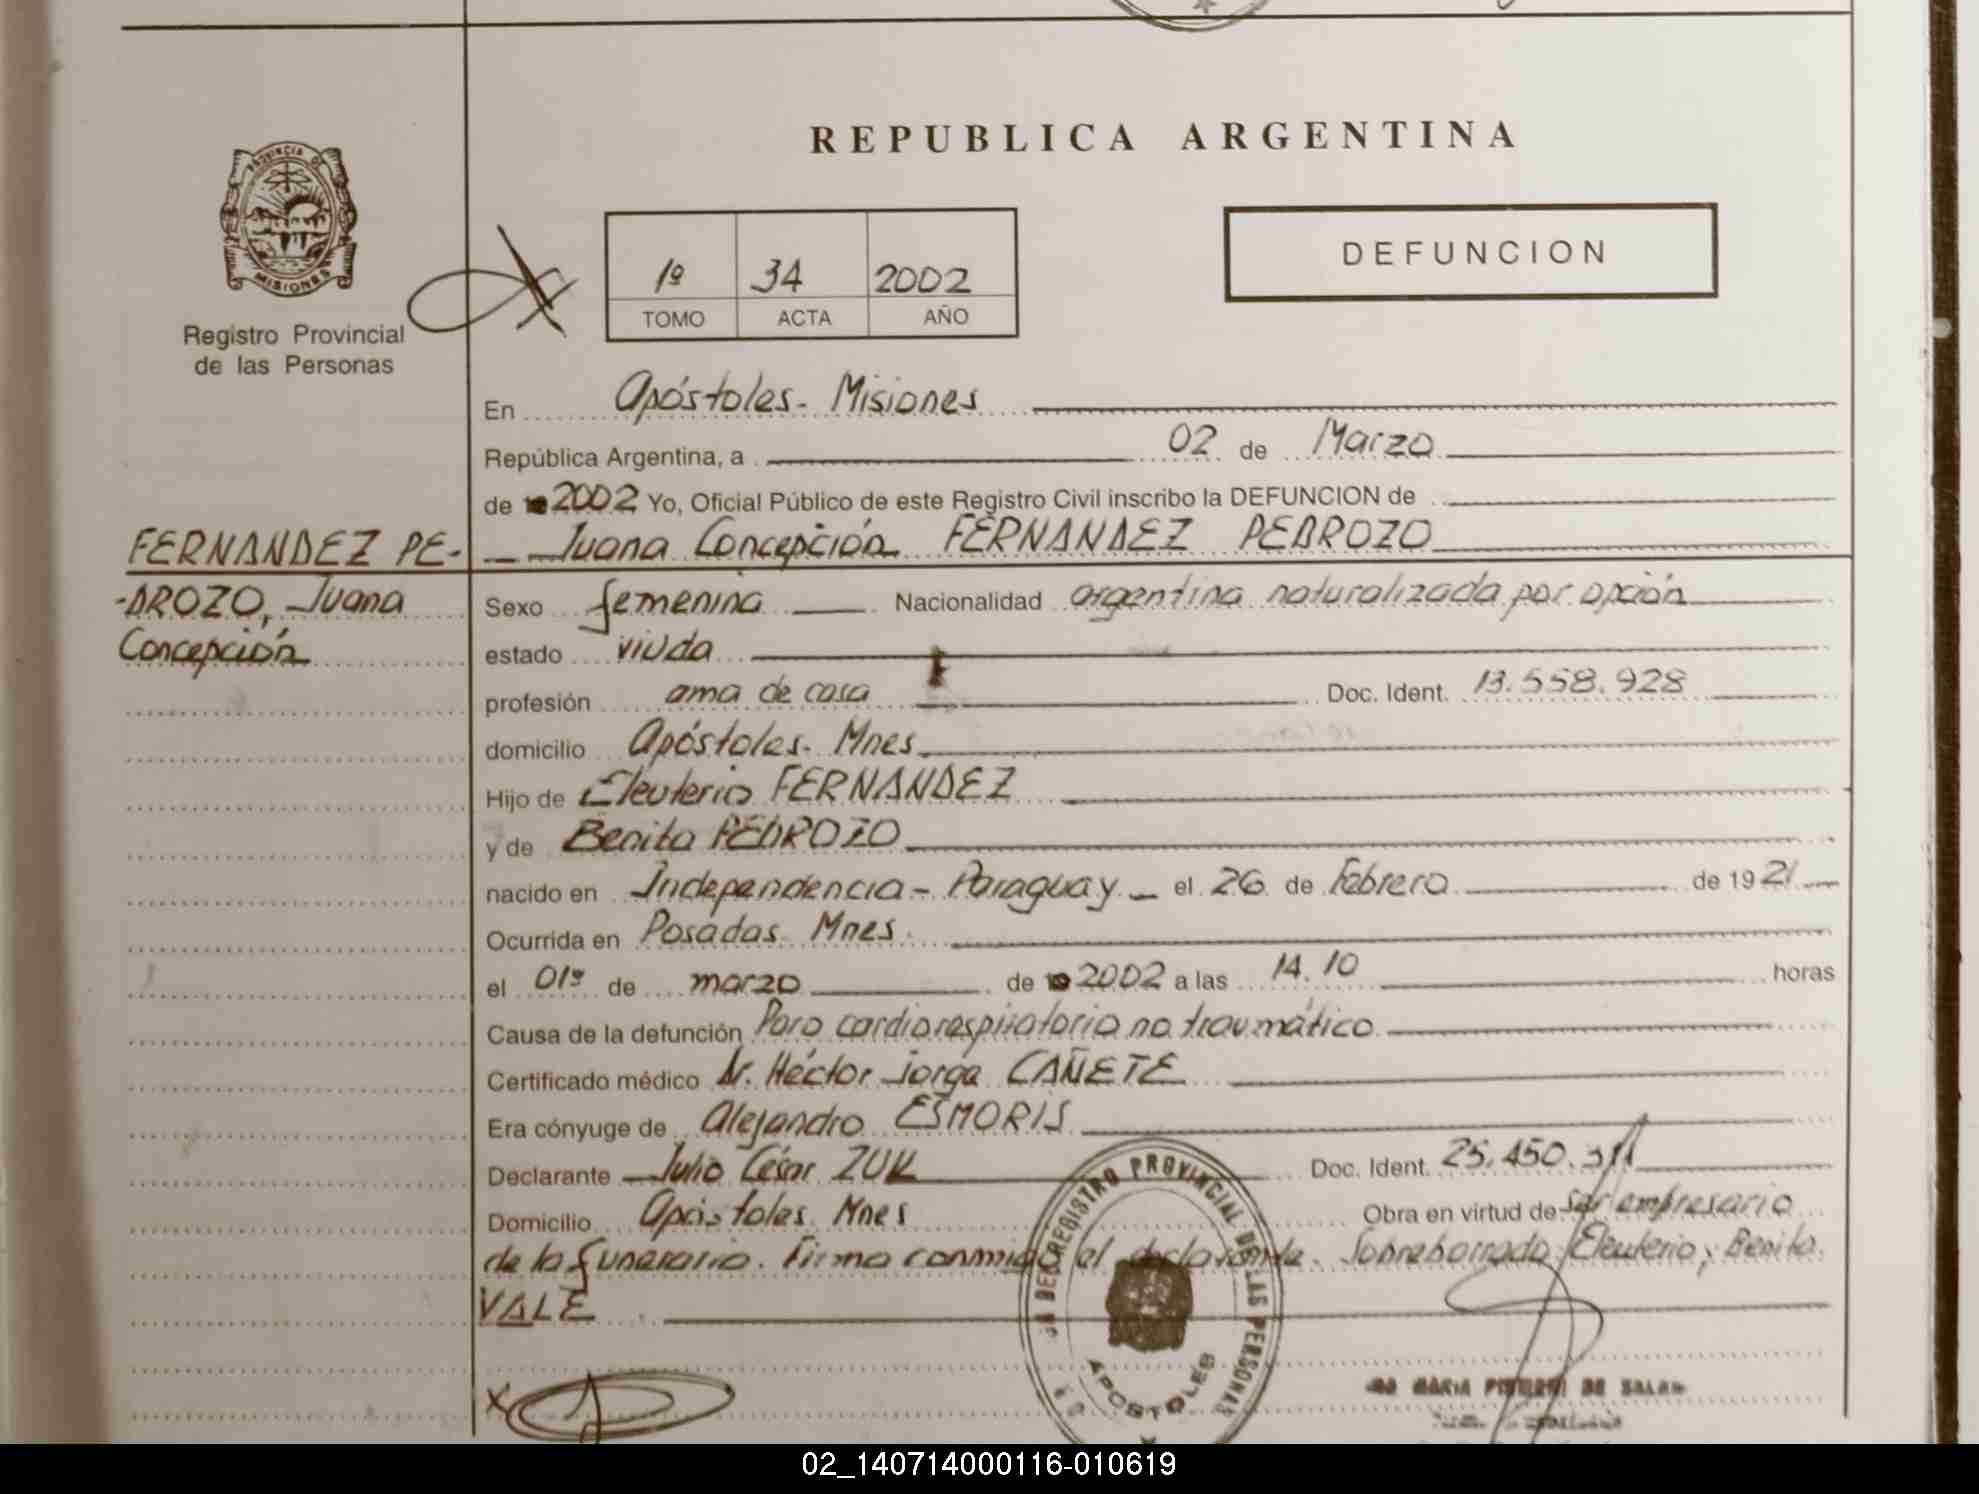 REPUBLICA ARGENTINA
PROVINCIA DE
MISIONES
Registro Provincial
de las Personas
1º 34 2002
TOMO ACTA AÑO
DEFUNCION
En Apóstoles- Misiones
República Argentina, a 02 de Marzo
de 2002 Yo, Oficial Público de este Registro Civil inscribo la DEFUNCION de
Juana Concepción FERNANDEZ PEDROZO
FERNANDEZ PE-
-DROZO, Juana
Concepción
Sexo femenina Nacionalidad argentina naturalizada por opción
estado viuda
profesión ama de casa Doc. Ident. 13.558.928
domicilio Apóstoles- Mnes
Hijo de Eleuterio FERNANDEZ
y de Benita PEDROZO
nacido en Independencia - Paraguay el 26 de Febrero de 1921
Ocurrida en Posadas Mnes.
el 01º de marzo de 2002 a las 14.10 horas
Causa de la defunción Paro cardiorespiratorio no traumático
Certificado médico Dr. Héctor Jorge CAÑETE
Era cónyuge de Alejandro ESMORIS
Declarante Julio César ZUK Doc. Ident. 25.450.
Domicilio Apóstoles Mnes Obra en virtud de ser empresario
de la funeraria. Firma conmigo el declarante. Sobreborrado: Eleuterio; Benita
VALE
REGISTRO PROVINCIAL DE LAS PERSONAS
APOSTOLES
MARIA DE
02_140714000116-010619